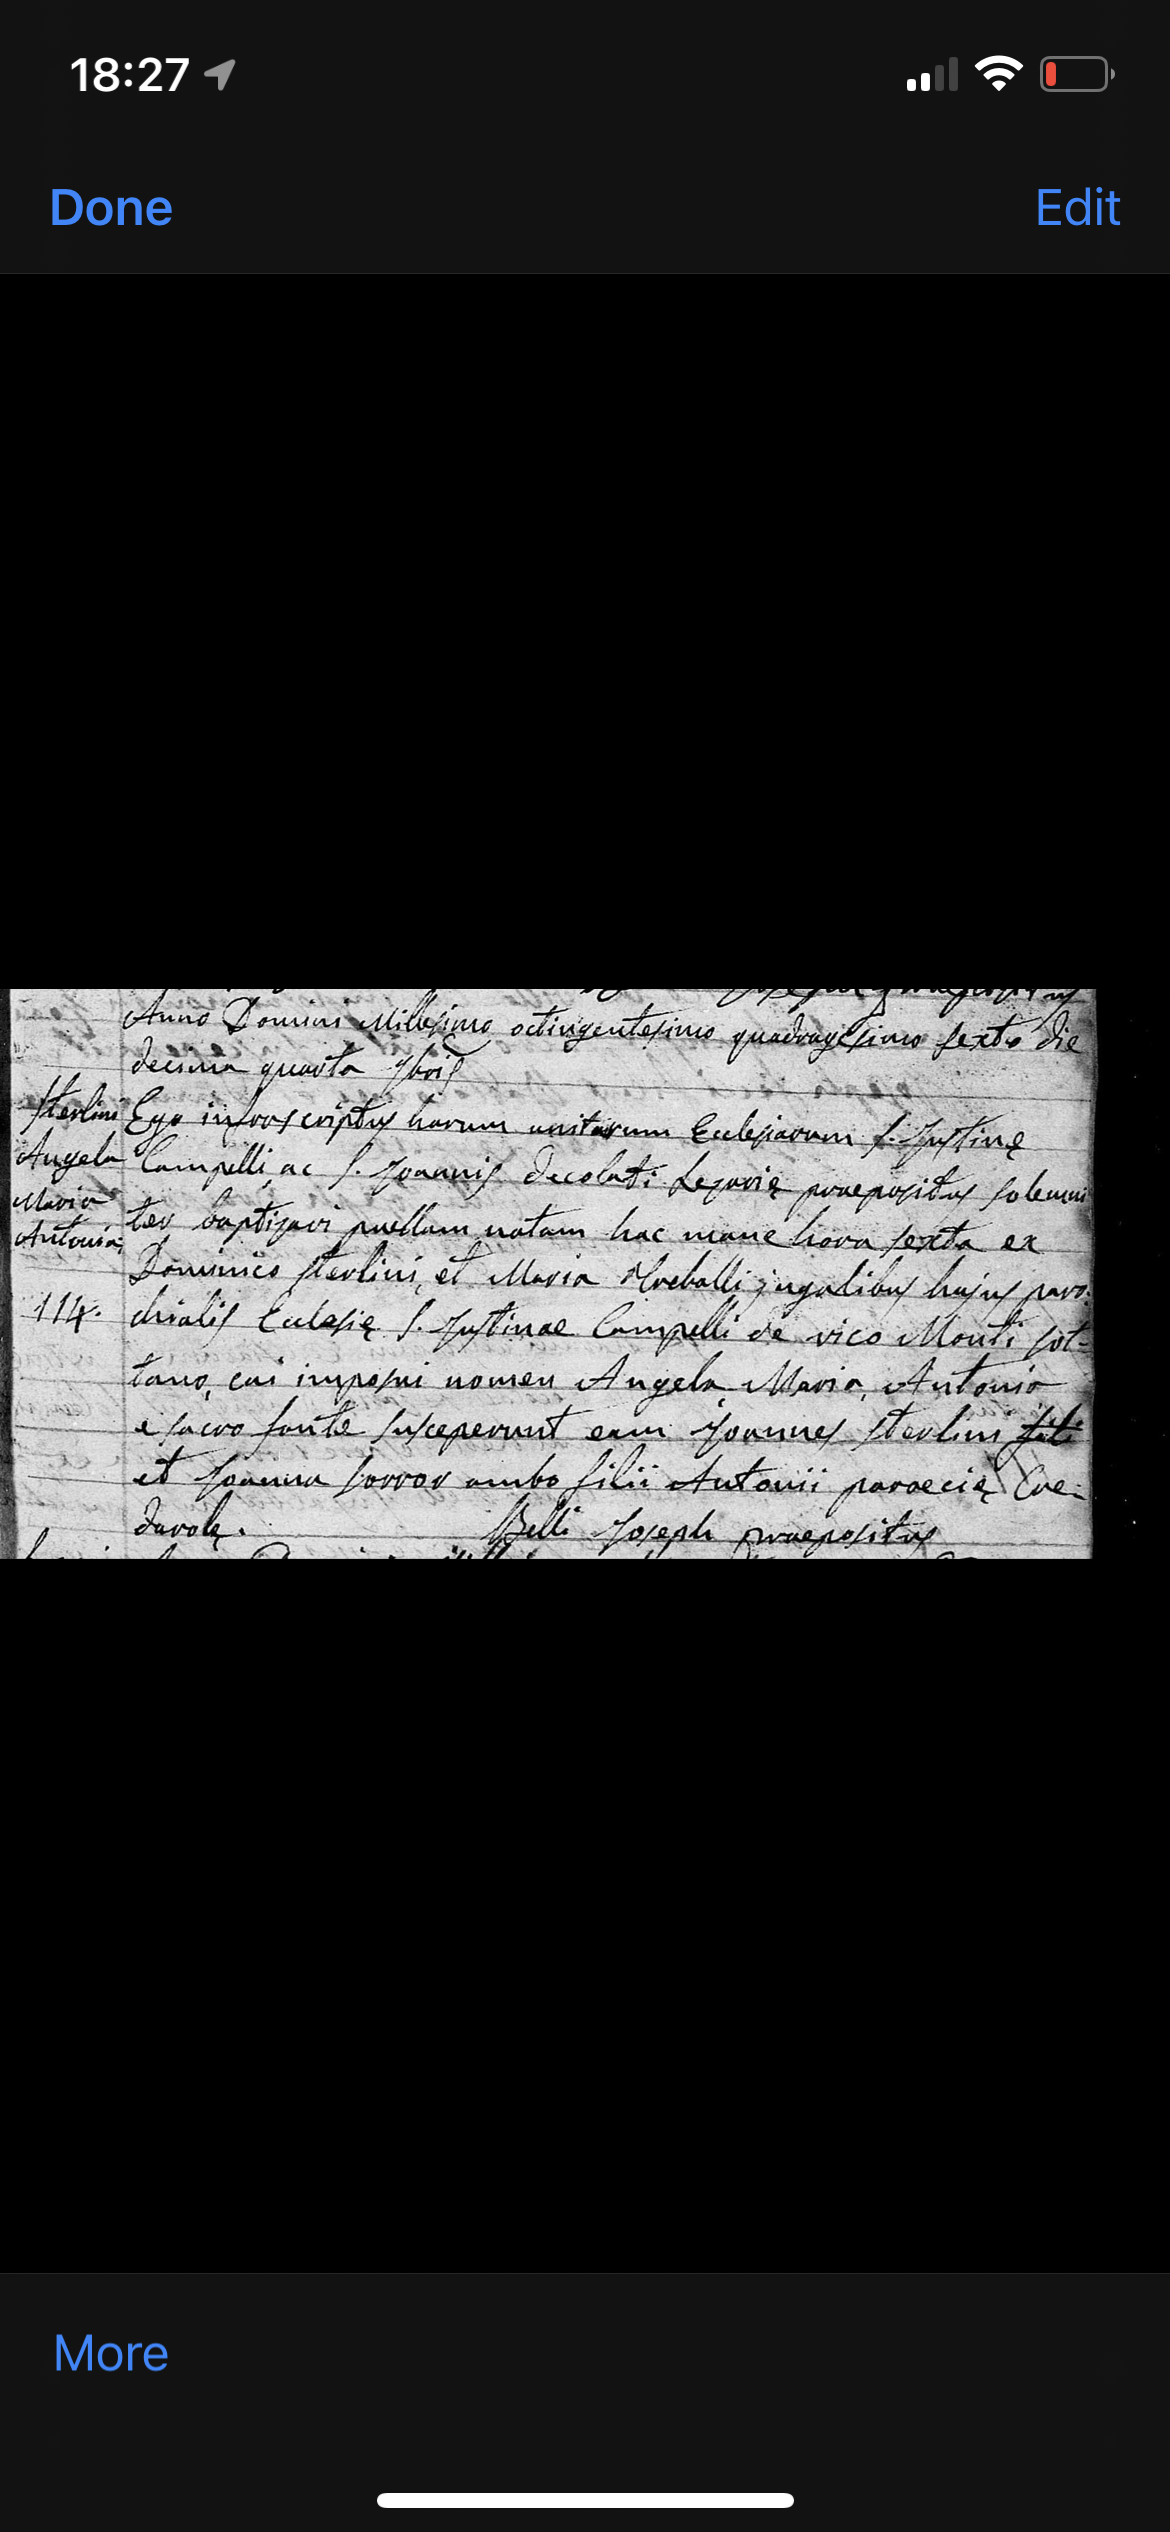 18:27
Done
Edit
Anno Domini Millesimo octingentesimo quadragesimo sexto die
decima quarta 9bris
Sterlini
Angela
Maria
Antonia,
114.
Ego infrascriptus harum unitarum Ecclesiarum S. Justinę
Campelli, ac S. Joannis decolati Lezarię praepositus solemni
ter baptizavi puellam natam hac mane hora sexta ex
Dominico Sterlini, et Maria jugalibus hujus paro-
chialis Eclesię S. Justinae Campelli de vico Monti sot-
tano, cui imposui nomen Angela, Maria, Antonia
e sacro fonte susceperunt eam Joannes Sterlini
et Joanna sorror ambo filii Antonii paraecię Cre-
darolę.
Belli Joseph praepositus
More